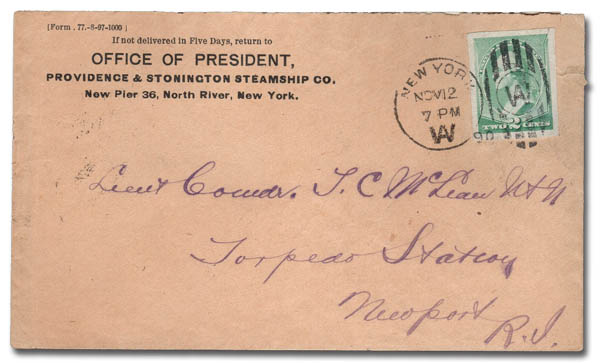 [Form. 77.-8-97-1000]
If not delivered in Five Days, return to
OFFICE OF PRESIDENT,
PROVIDENCE & STONINGTON STEAMSHIP CO.
New Pier 36, North River, New York.
NEW YORK
NOV 12
7 PM
W
TWO CENTS
Lieut Comdr. T. C McLean U S N
Torpedo Station
Newport
R. I.